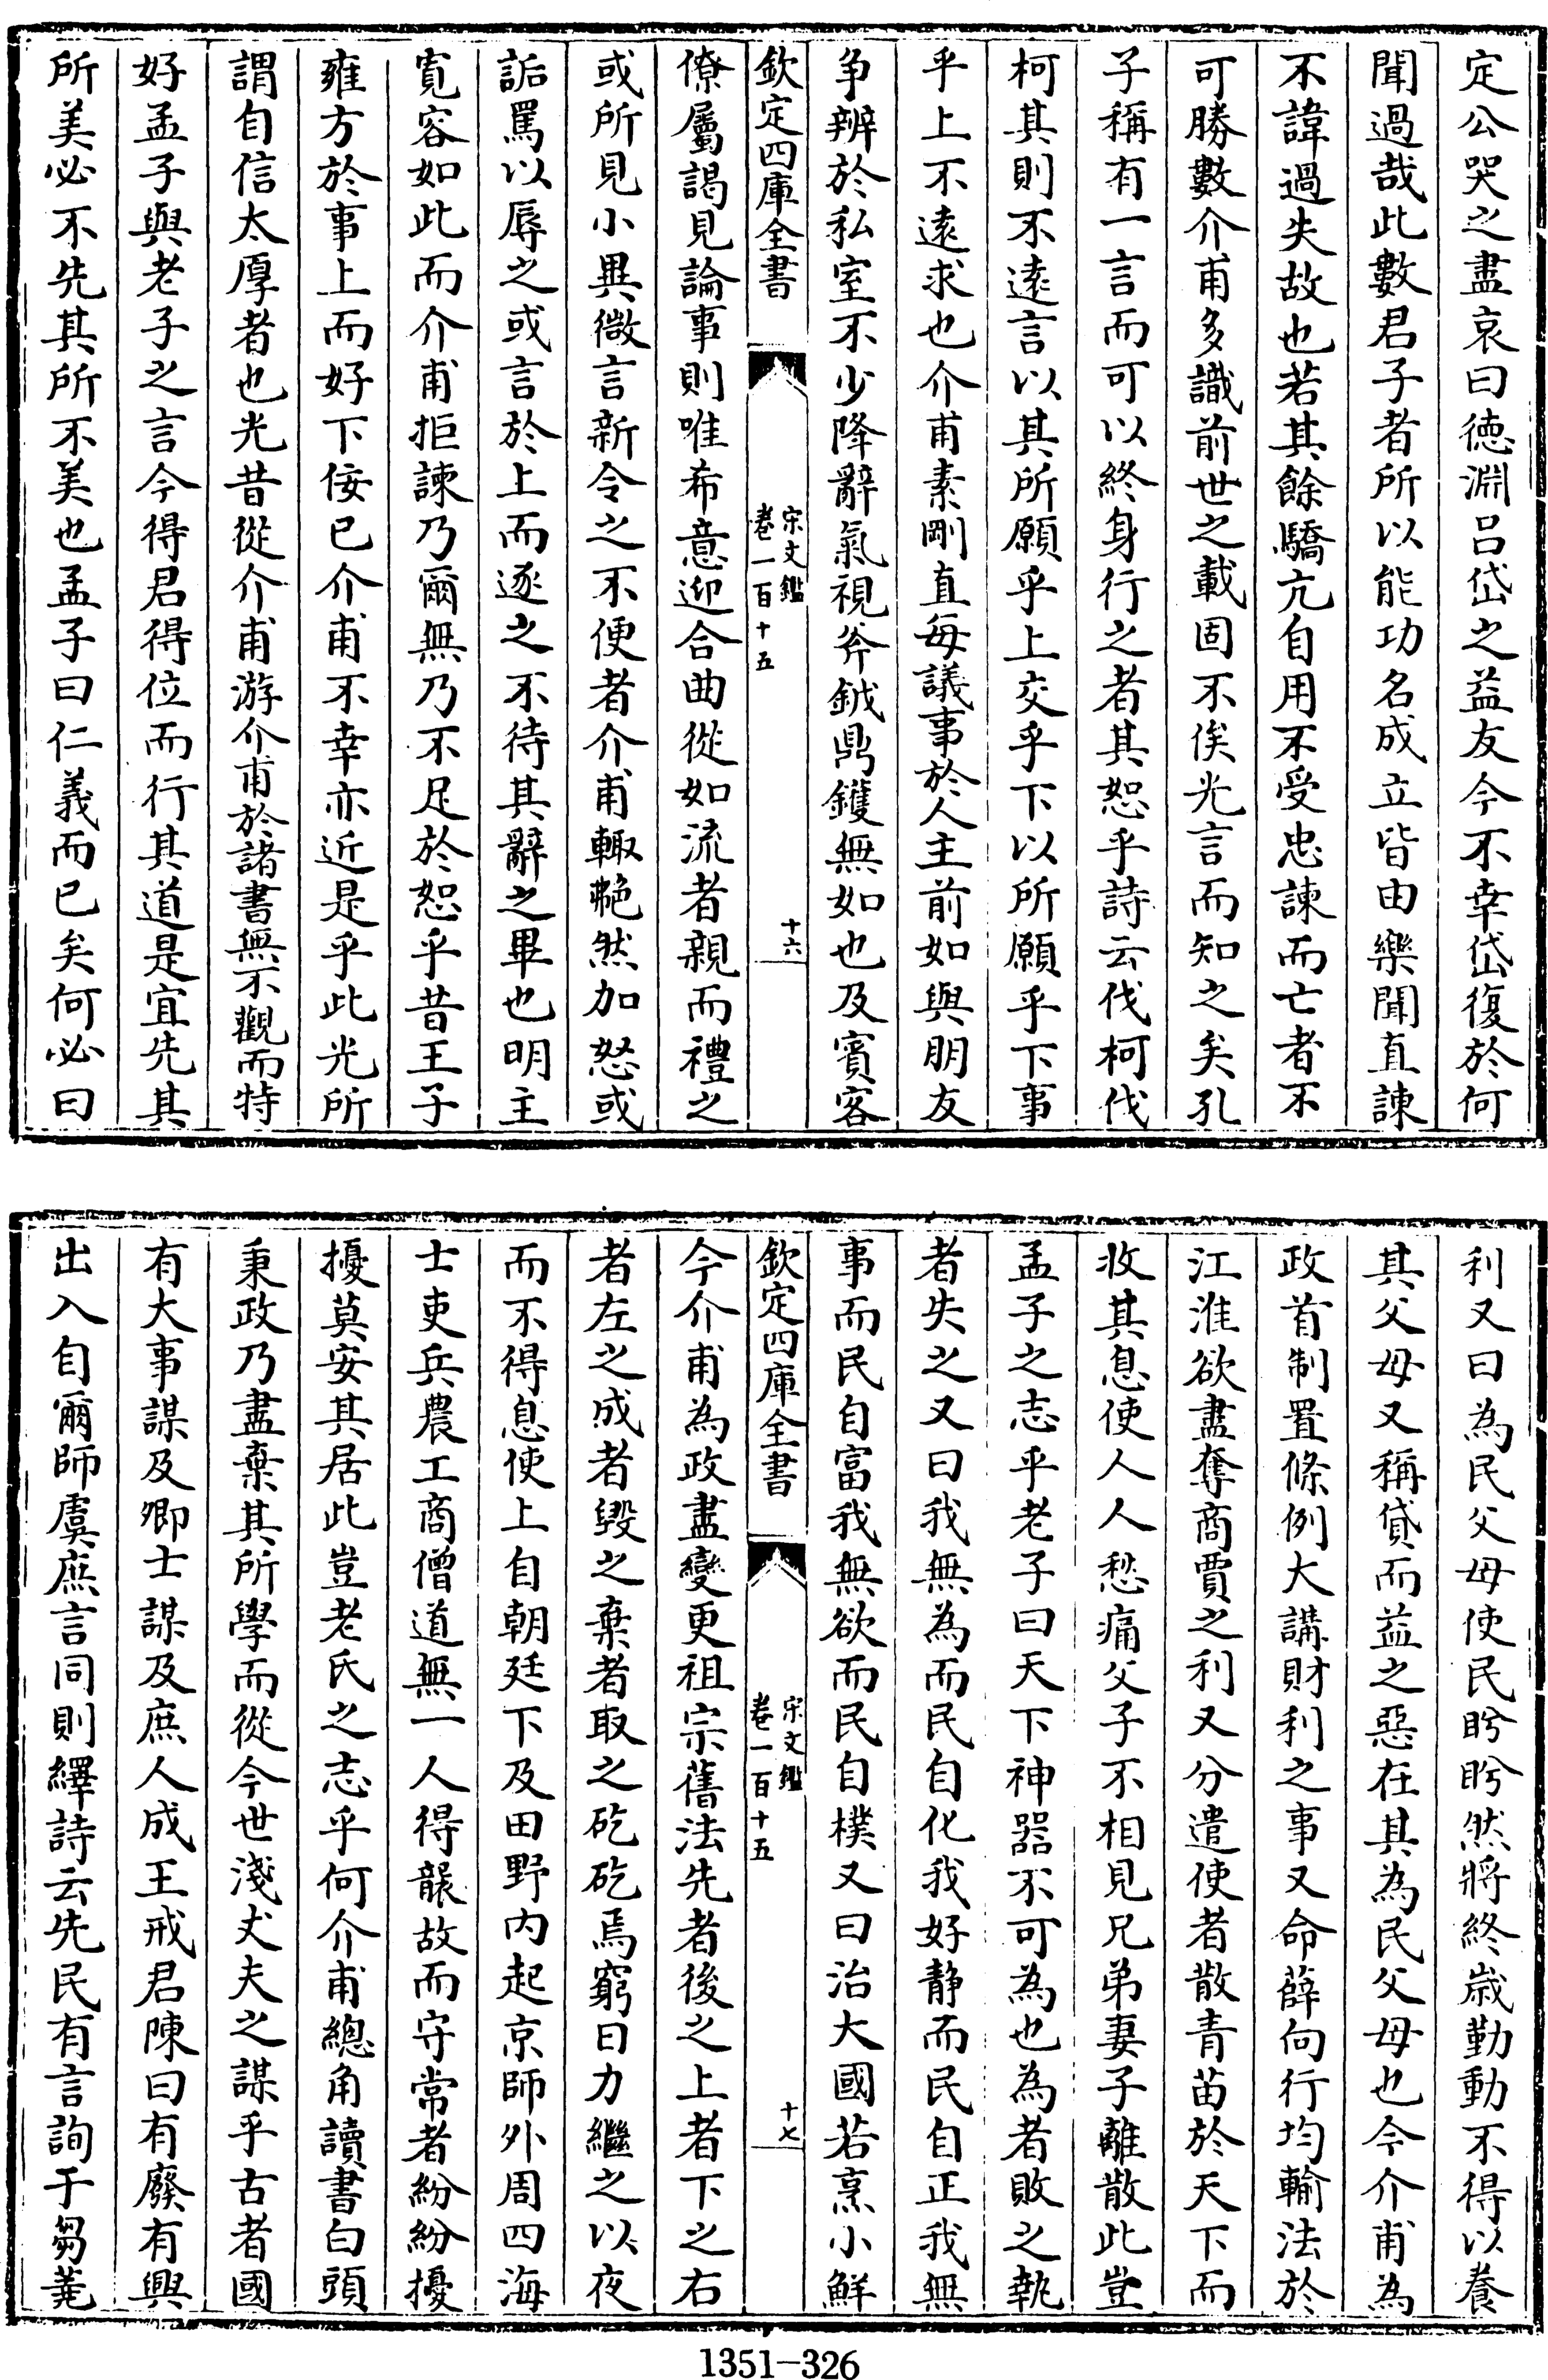 定公哭之盡哀曰德淵呂岱之益友今不幸岱復於何
聞過哉此數君子者所以能功名成立皆由樂聞直諫
不諱過失故也若其餘驕亢自用不受忠諫而亡者不
可勝數介甫多識前世之載固不俟光言而知之矣孔
子稱有一言而可以終身行之者其恕乎詩云伐柯伐
柯其則不逺言以其所願乎上交乎下以所願乎下事
乎上不逺求也介甫素剛直每議事於人主前如與朋友
争辨於私室不少降辭氣視斧鉞鼎鑊無如也及賓客
欽定四庫全書
宋文鑑
卷一百十五
十六
僚屬謁見論事則唯希意迎合曲從如流者親而禮之
或所見小異微言新令之不便者介甫輙艴然加怒或
詬罵以辱之或言於上而逐之不待其辭之畢也明主
寛容如此而介甫拒諫乃爾無乃不足於恕乎昔王子
雍方於事上而好下佞已介甫不幸亦近是乎此光所
謂自信太厚者也光昔從介甫游介甫於諸書無不觀而特
好孟子與老子之言今得君得位而行其道是宜先其
所美必不先其所不美也孟子曰仁義而已矣何必曰
利又曰為民父母使民盻盻然將終嵗勤動不得以養
其父母又稱貸而益之惡在其為民父母也今介甫為
政首制置條例大講財利之事又命薛向行均輸法於
江淮欲盡奪商賈之利又分遣使者散青苗於天下而
收其息使人人愁痛父子不相見兄弟妻子離散此豈
孟子之志乎老子曰天下神器不可為也為者敗之執
者失之又曰我無為而民自化我好静而民自正我無
事而民自富我無欲而民自樸又曰治大國若烹小鮮
欽定四庫全書
宋文鑑
卷一百十五
十七
今介甫為政盡變更祖宗舊法先者後之上者下之右
者左之成者毀之棄者取之矻矻焉窮日力繼之以夜
而不得息使上自朝廷下及田野内起京師外周四海
士吏兵農工商僧道無一人得襲故而守常者紛紛擾
擾莫安其居此豈老氏之志乎何介甫總角讀書白頭
秉政乃盡棄其所學而從今世淺丈夫之謀乎古者國
有大事謀及卿士謀及庶人成王戒君陳曰有廢有興
出入自爾師虞庶言同則繹詩云先民有言詢于芻蕘
1351-326